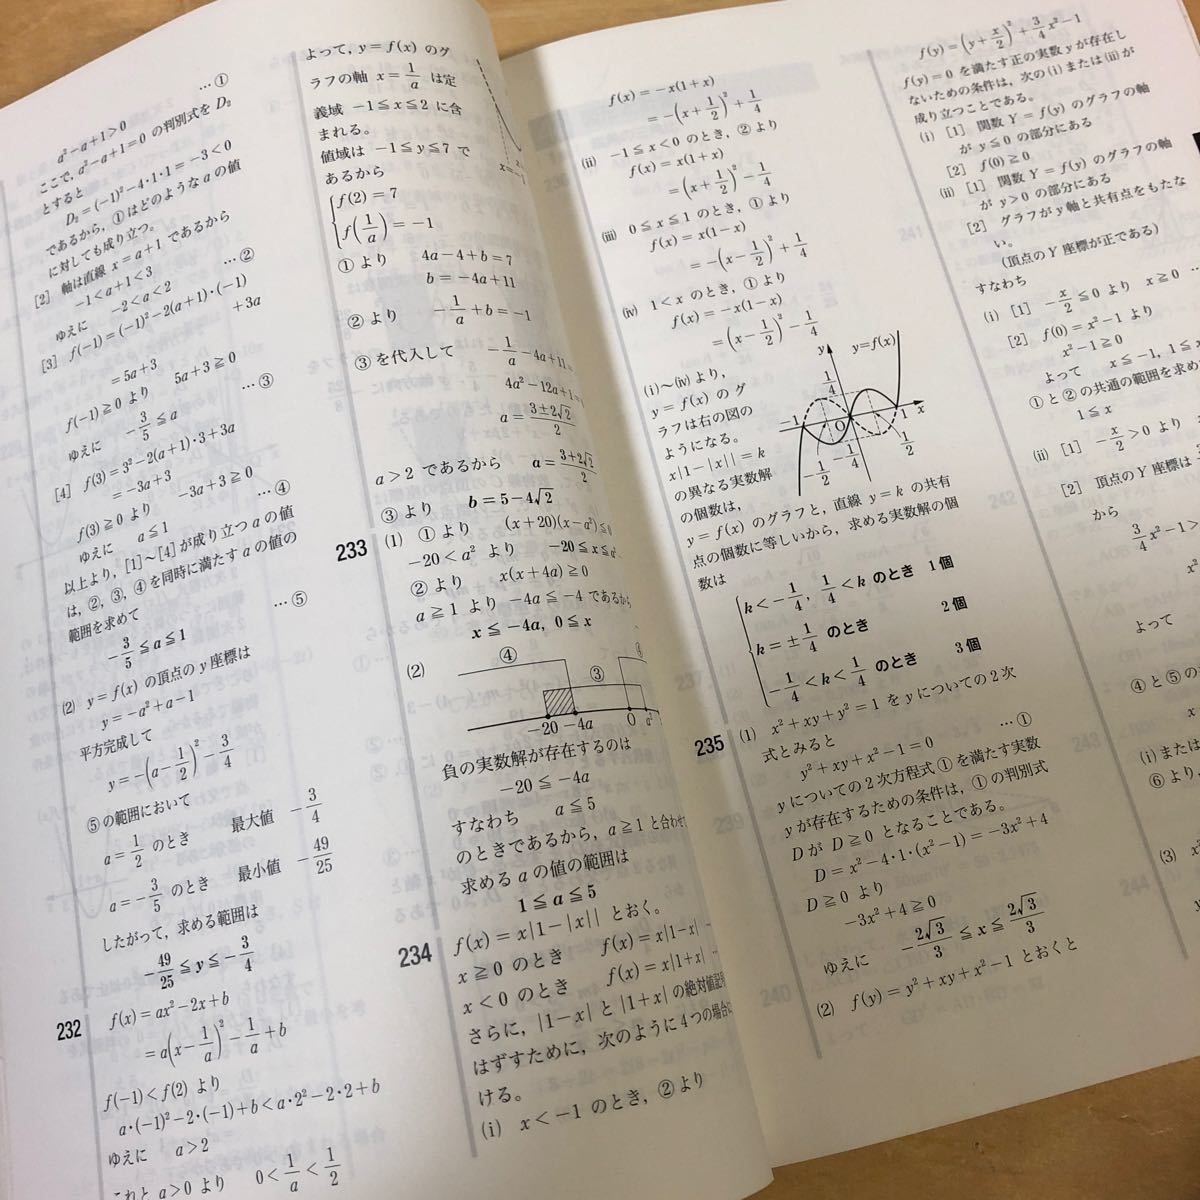 …①
a²−a+1>0
ここで, a²−a+1=0 の判別式を D₂
とすると
D₂=(−1)²−4・1・1=−3<0
であるから, ①はどのような a の値
に対しても成り立つ。
[2] 軸は直線 x=a+1 であるから
−1<a+1<3
ゆえに −2<a<2 …②
[3] f(−1)=(−1)²−2(a+1)・(−1)
+3a
=5a+3
f(−1)≧0 より 5a+3≧0
ゆえに −3/5≦a …③
[4] f(3)=3²−2(a+1)・3+3a
=−3a+3
f(3)≧0 より −3a+3≧0
ゆえに a≦1 …④
以上より, [1]〜[4] が成り立つ a の値
は, ②, ③, ④ を同時に満たす a の値の
範囲を求めて
−3/5≦a≦1 …⑤
(2) y=f(x) の頂点の y 座標は
y=−a²+a−1
平方完成して
y=−(a−1/2)²−3/4
⑤の範囲において
a=1/2 のとき 最大値 −3/4
a=−3/5 のとき 最小値 −49/25
したがって, 求める範囲は
−49/25≦y≦−3/4
232 f(x)=ax²−2x+b
=a(x−1/a)²−1/a+b
f(−1)<f(2) より
a・(−1)²−2・(−1)+b<a・2²−2・2+b
ゆえに a>2
これと a>0 より 0<1/a<1/2
よって, y=f(x) のグ
ラフの軸 x=1/a は定
義域 −1≦x≦2 に含
まれる。
値域は −1≦y≦7 で
あるから
f(2)=7
f(1/a)=−1
①より 4a−4+b=7
b=−4a+11
②より −1/a+b=−1
③を代入して −1/a−4a+11=
4a²−12a+1=
a=3±2√2/2
a>2 であるから a=3+2√2/2
③より b=5−4√2
233 (1) ①より (x+20)(x−a²)≦0
−20<a² より −20≦x≦a²
②より x(x+4a)≧0
a≧1 より −4a≦−4 であるから
x≦−4a, 0≦x
(2) ④ ③
−20 −4a 0 a²
負の実数解が存在するのは
−20≦−4a
すなわち a≦5
のときであるから, a≧1 と合わせ
求める a の値の範囲は
1≦a≦5
234 f(x)=x|1−|x|| とおく。
x≧0 のとき f(x)=x|1−x|
x<0 のとき f(x)=x|1+x|
さらに, |1−x| と |1+x| の絶対値記
はずすために, 次のように4つの場合
ける。
(i) x<−1 のとき, ②より
f(x)=−x(1+x)
=−(x+1/2)²+1/4
(ii) −1≦x<0 のとき, ②より
f(x)=x(1+x)
=(x+1/2)²−1/4
(iii) 0≦x≦1 のとき, ①より
f(x)=x(1−x)
=−(x−1/2)²+1/4
(iv) 1<x のとき, ①より
f(x)=−x(1−x)
=(x−1/2)²−1/4
(i)〜(iv) より,
y=f(x) のグ
ラフは右の図の
ようになる。
x|1−|x||=k
の異なる実数解
の個数は,
y y=f(x)
1/4
−1 O 1 x
−1/2 −1/4 1/2
y=f(x) のグラフと, 直線 y=k の共有
点の個数に等しいから, 求める実数解の個
数は
k<−1/4, 1/4<k のとき 1個
k=±1/4 のとき 2個
−1/4<k<1/4 のとき 3個
235 (1) x²+xy+y²=1 を y についての2次
式とみると
y²+xy+x²−1=0 …①
y についての2次方程式①を満たす実数
y が存在するための条件は, ①の判別式
D が D≧0 となることである。
D=x²−4・1・(x²−1)=−3x²+4
D≧0 より
−3x²+4≧0
ゆえに −2√3/3≦x≦2√3/3
(2) f(y)=y²+xy+x²−1 とおくと
f(y)=(y+x/2)²+3/4x²−1
f(y)=0 を満たす正の実数 y が存在し
ないための条件は, 次の (i) または (ii) が
成り立つことである。
(i) [1] 関数 Y=f(y) のグラフの軸
が y≦0 の部分にある
[2] f(0)≧0
(ii) [1] 関数 Y=f(y) のグラフの軸
が y>0 の部分にある
[2] グラフが y 軸と共有点をもたな
い。
(頂点の Y 座標が正である)
すなわち
(i) [1] −x/2≦0 より x≧0 …
[2] f(0)=x²−1 より
x²−1≧0
よって x≦−1, 1≦x
①と②の共通の範囲を求め
1≦x
(ii) [1] −x/2>0 より
[2] 頂点の Y 座標は
から
3/4x²−1>
x²
よって
④と⑤の
x
(i) または
⑥より,
(3) x²